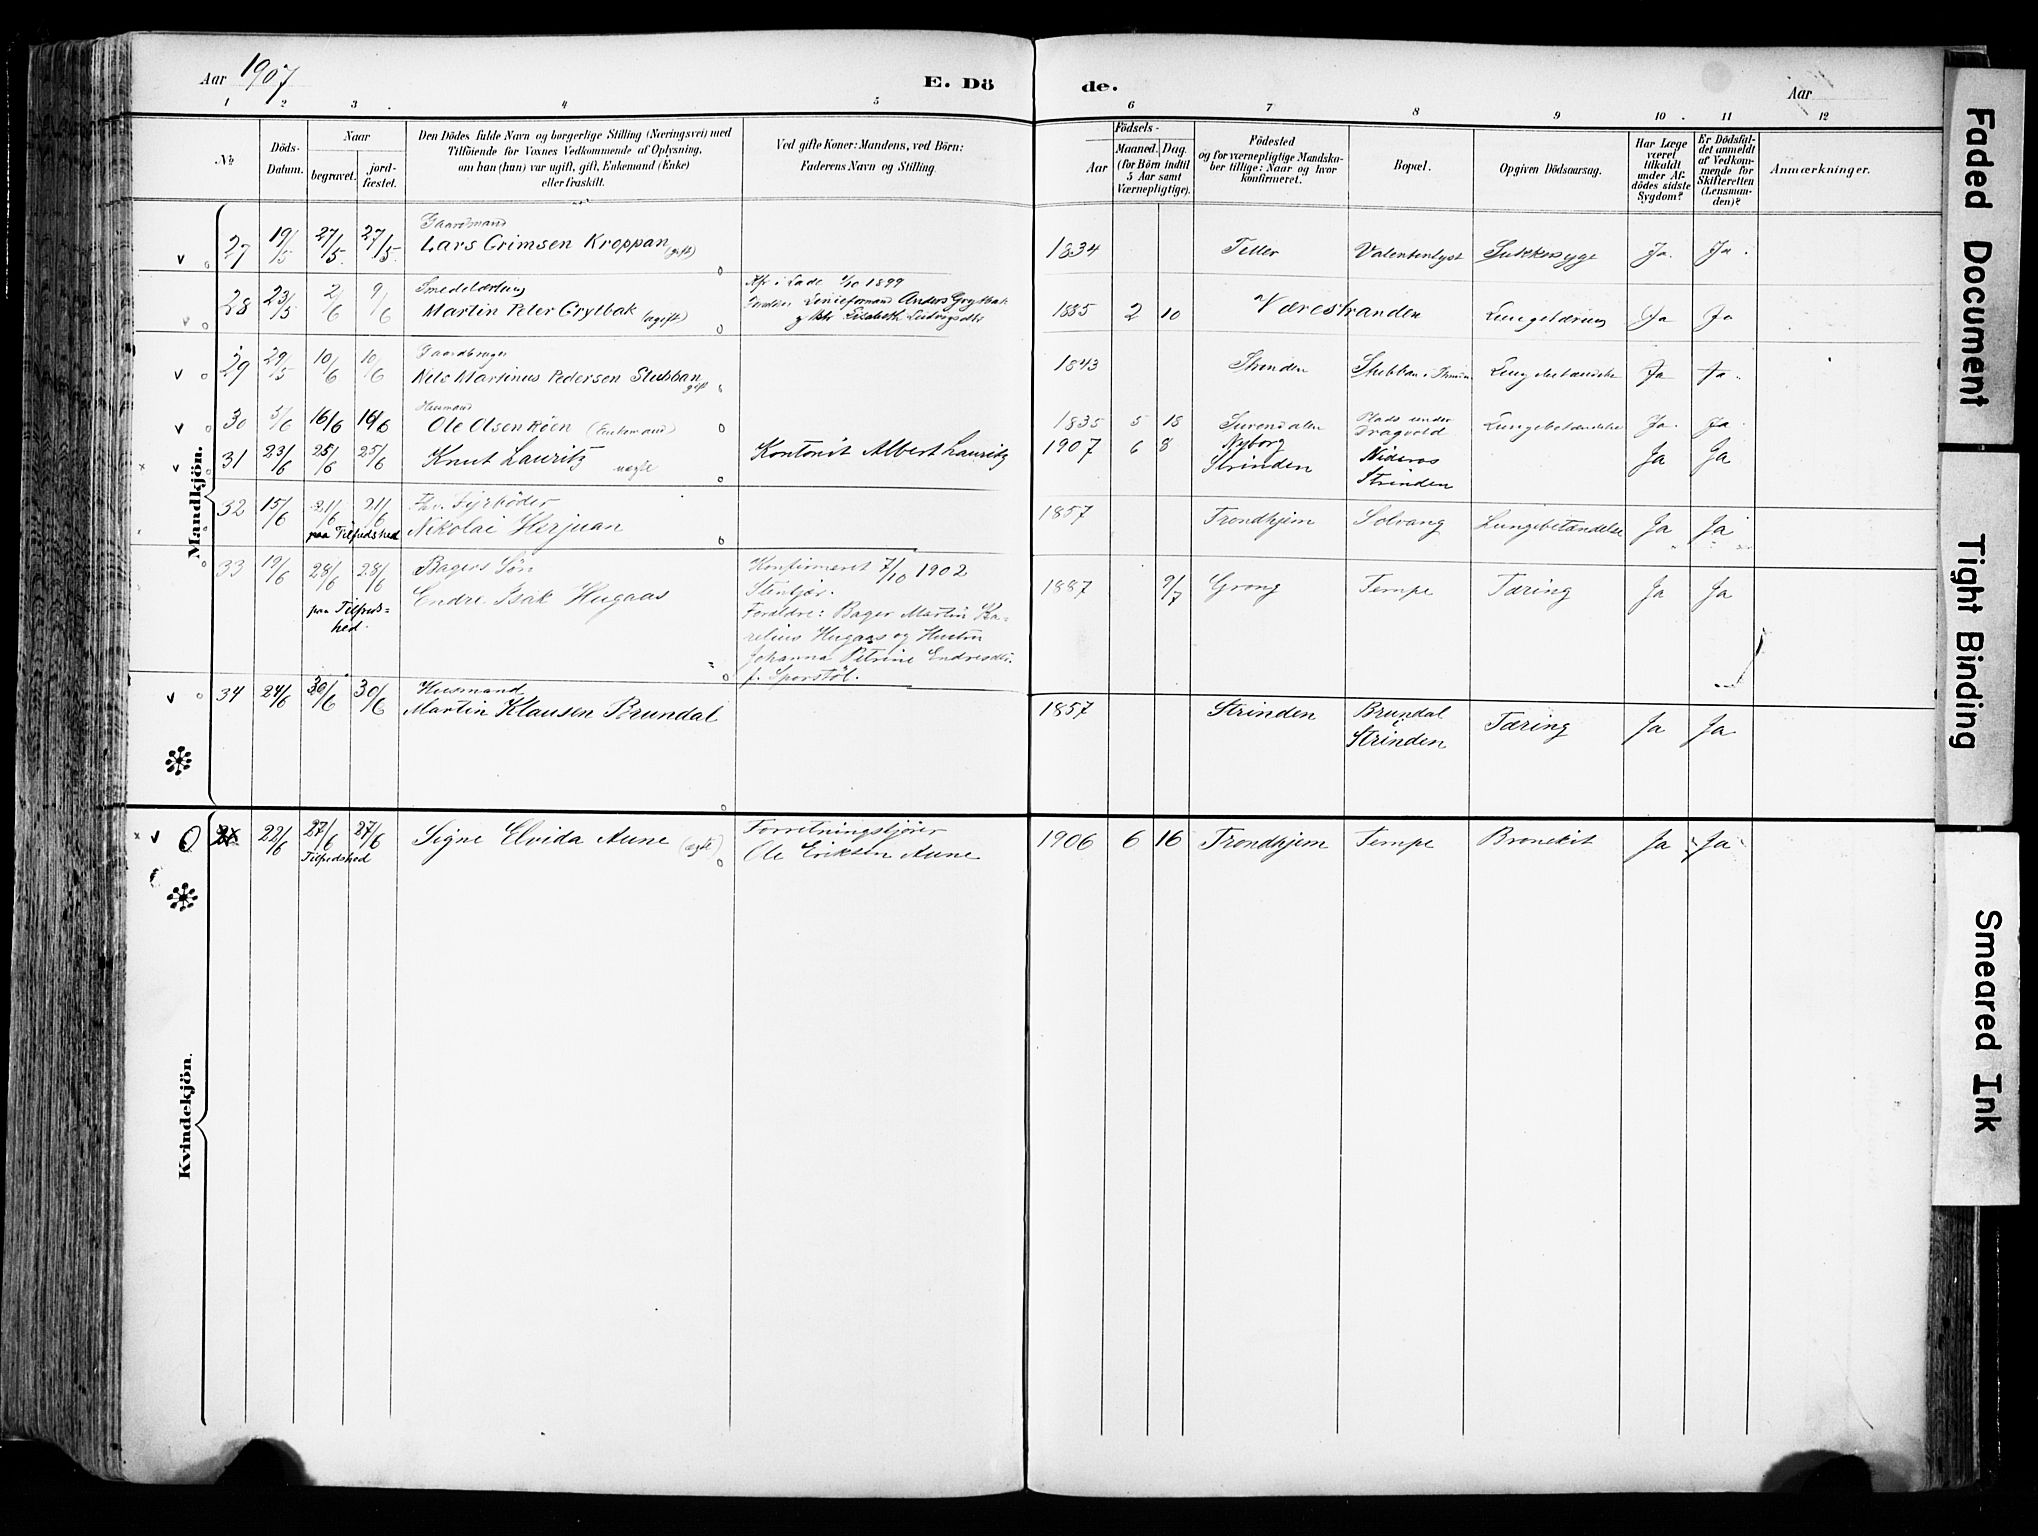 Aar 1907
E. Dö
de.
Aar
1 2 3 4 5 6 7 8 9 10 11 12
№
Döds-
Datum.
Naar
begravet.
jord-
fæstet.
Den Dödes fulde Navn og borgerlige Stilling (Næringsvei) med
Tilföiende for Voxnes Vedkommende af Oplysning,
om han (hun) var ugift, gift, Enkemand (Enke)
eller fraskilt.
Ved gifte Koner: Mandens, ved Börn:
Faderens Navn og Stilling.
Födsels-
Aar
Maaned. Dag.
(for Börn indtil
5 Aar samt
Værnepligtige).
Födested
og for værnepligtige Mandska-
ber tillige: Naar og hvor
konfirmeret.
Bopæl.
Opgiven Dödsaarsag.
Har Læge
været
tilkaldt
under Af-
dödes sidste
Sygdom?
Er Dödsfal-
det anmeldt
af Vedkom-
mende for
Skifteretten
(Lensman-
den)?
Anmærkninger.
Mandkjön.
Gaardmand
27 19/5 27/5 27/5 Lars Grimsen Kroppan (gift) 1834 Tiller Valentinlyst Sukkersyge Ja. Ja.
Smedelærling
28 23/5 2/6 9/6 Martin Peter Grytbak (ugift)
Kfr. i Lade 1/10 1899
Anders Grytbak
Elisabeth Ludvigsdtr
1885 2 10 Værestranden Ja Ja
Gaardbruger
29 29/5 10/6 10/6 Nils Martinus Pedersen Stubban gift 1843 Strinden Stubban Ja Ja.
Husmand
30 5/6 16/6 16/6 Ole Olsen Röen (Enkemand) 1835 5 18 Surendalen Plads under
Dragvold
Lungebetændelse Ja. Ja.
31 23/6 25/6 25/6 Knut Lauritz uægte Kontorist Albert Lauritz 1907 6 8 Nyborg
Strinden
Nidaros
Strinden
Ja Ja
Fhv. Fyrböder
32 15/6 21/6 21/6 Nikolai Herjuan 1857 Trondhjem Solvang Lungebetændelse Ja Ja
paa Tilfredshed
33 19/6 28/6 28/6 Bagers Sön
Endre Isak Hugaas
paa Tilfreds-
hed.
Konfirmeret 7/10 1902
Stenkjær.
Forældre: Bager Martin Ka-
relius Hugaas og Hustru
Johanna Petrine Endresdtr.
f. Sporstöl.
1887 9/7 Grong Tempe Tæring Ja Ja
Husmand
34 24/6 30/6 30/6 Martin Klausen Brundal 1857 Strinden Brundal
Strinden
Tæring Ja Ja
Kvindekjön.
22/6 27/6 27/6 Signe Elvida Aune (ægte)
Tilfredshed
Forretningsfjörer
Ole Eriksen Aune
1906 6 16 Trondhjem Tempe Bronckit Ja Ja
Faded Document
Tight Binding
Smeared Ink